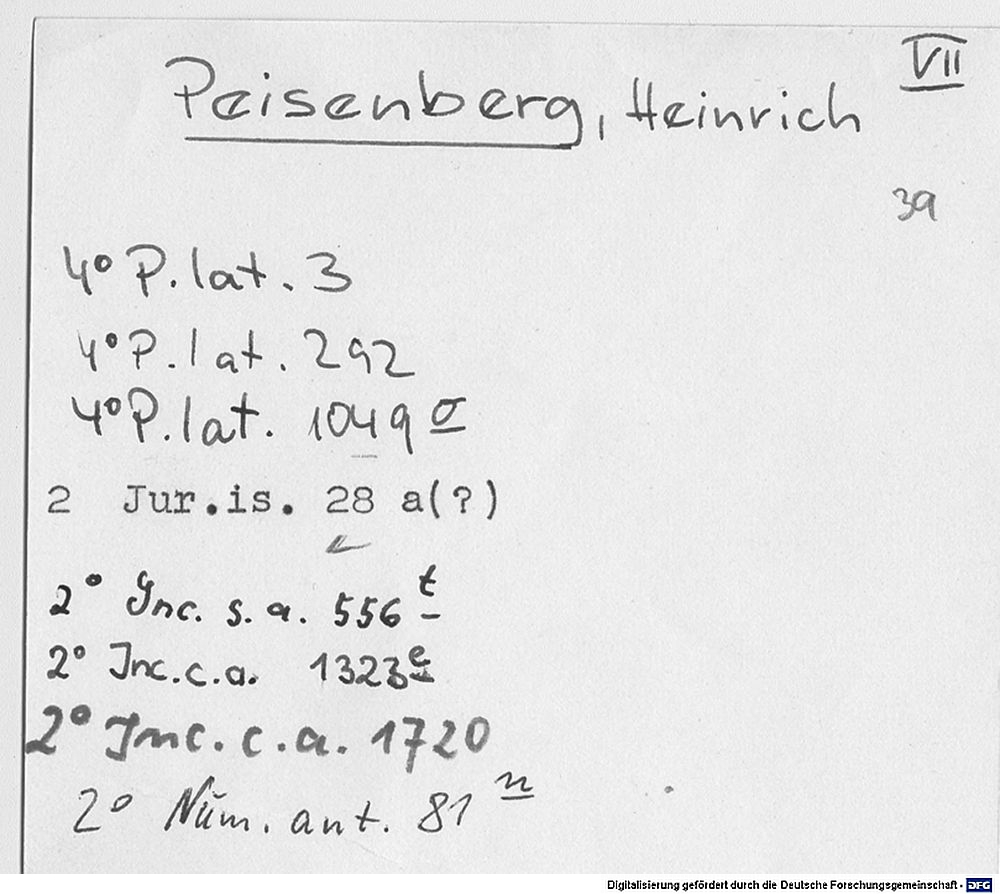 VII
Peisenberg, Heinrich
39
4° P. lat. 3
4° P. lat. 292
4° P. lat. 1049 σ
2 Jur.is. 28 a(?)
2° Inc. s. a. 556 t
2° Inc. c. a. 1323 e
2° Inc. c. a. 1720
2° Num. ant. 81 n
Digitalisierung gefördert durch die Deutsche Forschungsgemeinschaft - DFG